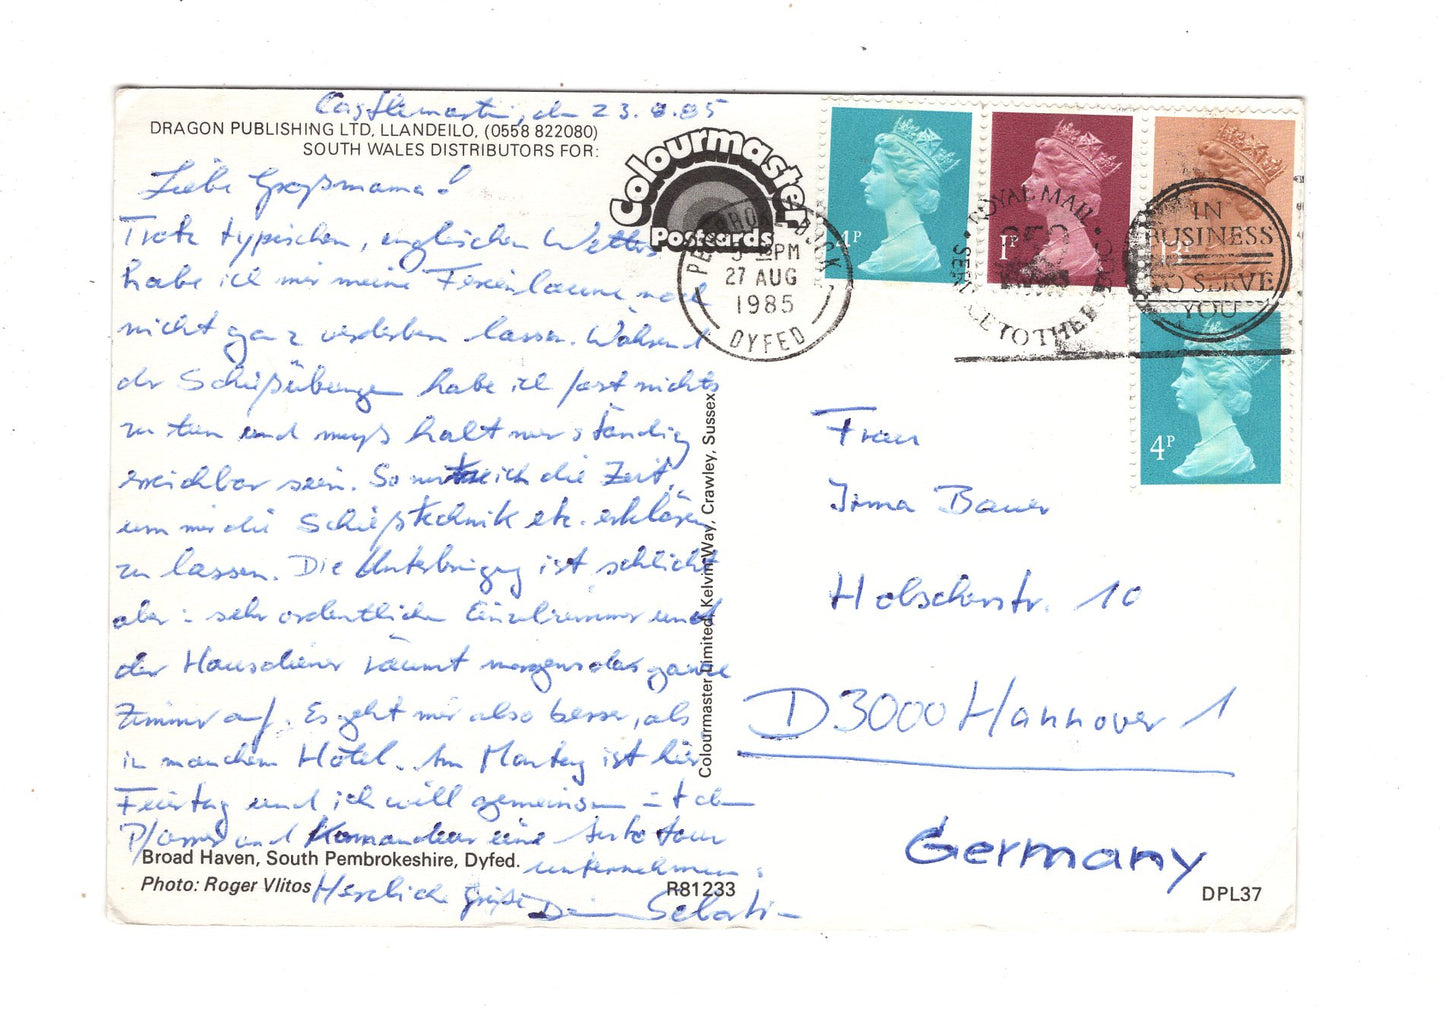 Castlemartin, den 23.8.85
DRAGON PUBLISHING LTD, LLANDEILO, (0558 822080)
SOUTH WALES DISTRIBUTORS FOR:
Colourmaster
Postcards
Liebe Großmama!
Trotz typischen, englischen Wetters
habe ich mir meine Ferienlaune noch
nicht ganz verderben lassen. Während
der Schießübungen habe ich fast nichts
zu tun und muß halt nur ständig
erreichbar sein. So nutze ich die Zeit,
um mir die Schießtechnik etc. erklären
zu lassen. Die Unterbringung ist schlicht
aber: sehr ordentlichen Einzelzimmer und
der Hausdiener räumt morgens das ganze
Zimmer auf. Es geht mir also besser, als
in manchem Hotel. Am Montag ist hier
Feiertag und ich will gemeinsam mit dem
Pfarrer und Kommandeur eine Autotour
unternehmen.
Herzliche Grüße Dein Sebastian
Broad Haven, South Pembrokeshire, Dyfed.
Photo: Roger Vlitos
R81233
DPL37
Colourmaster Limited, Kelvin Way, Crawley, Sussex
PEMBROKE DOCK
PM
27 AUG
1985
DYFED
4P
1P
ROYAL MAIL
350
SERVICE TO THE PUBLIC
IN
BUSINESS
TO SERVE
YOU
4P
Frau
Irma Bauer
Holscherstr. 10
D 3000 Hannover 1
Germany